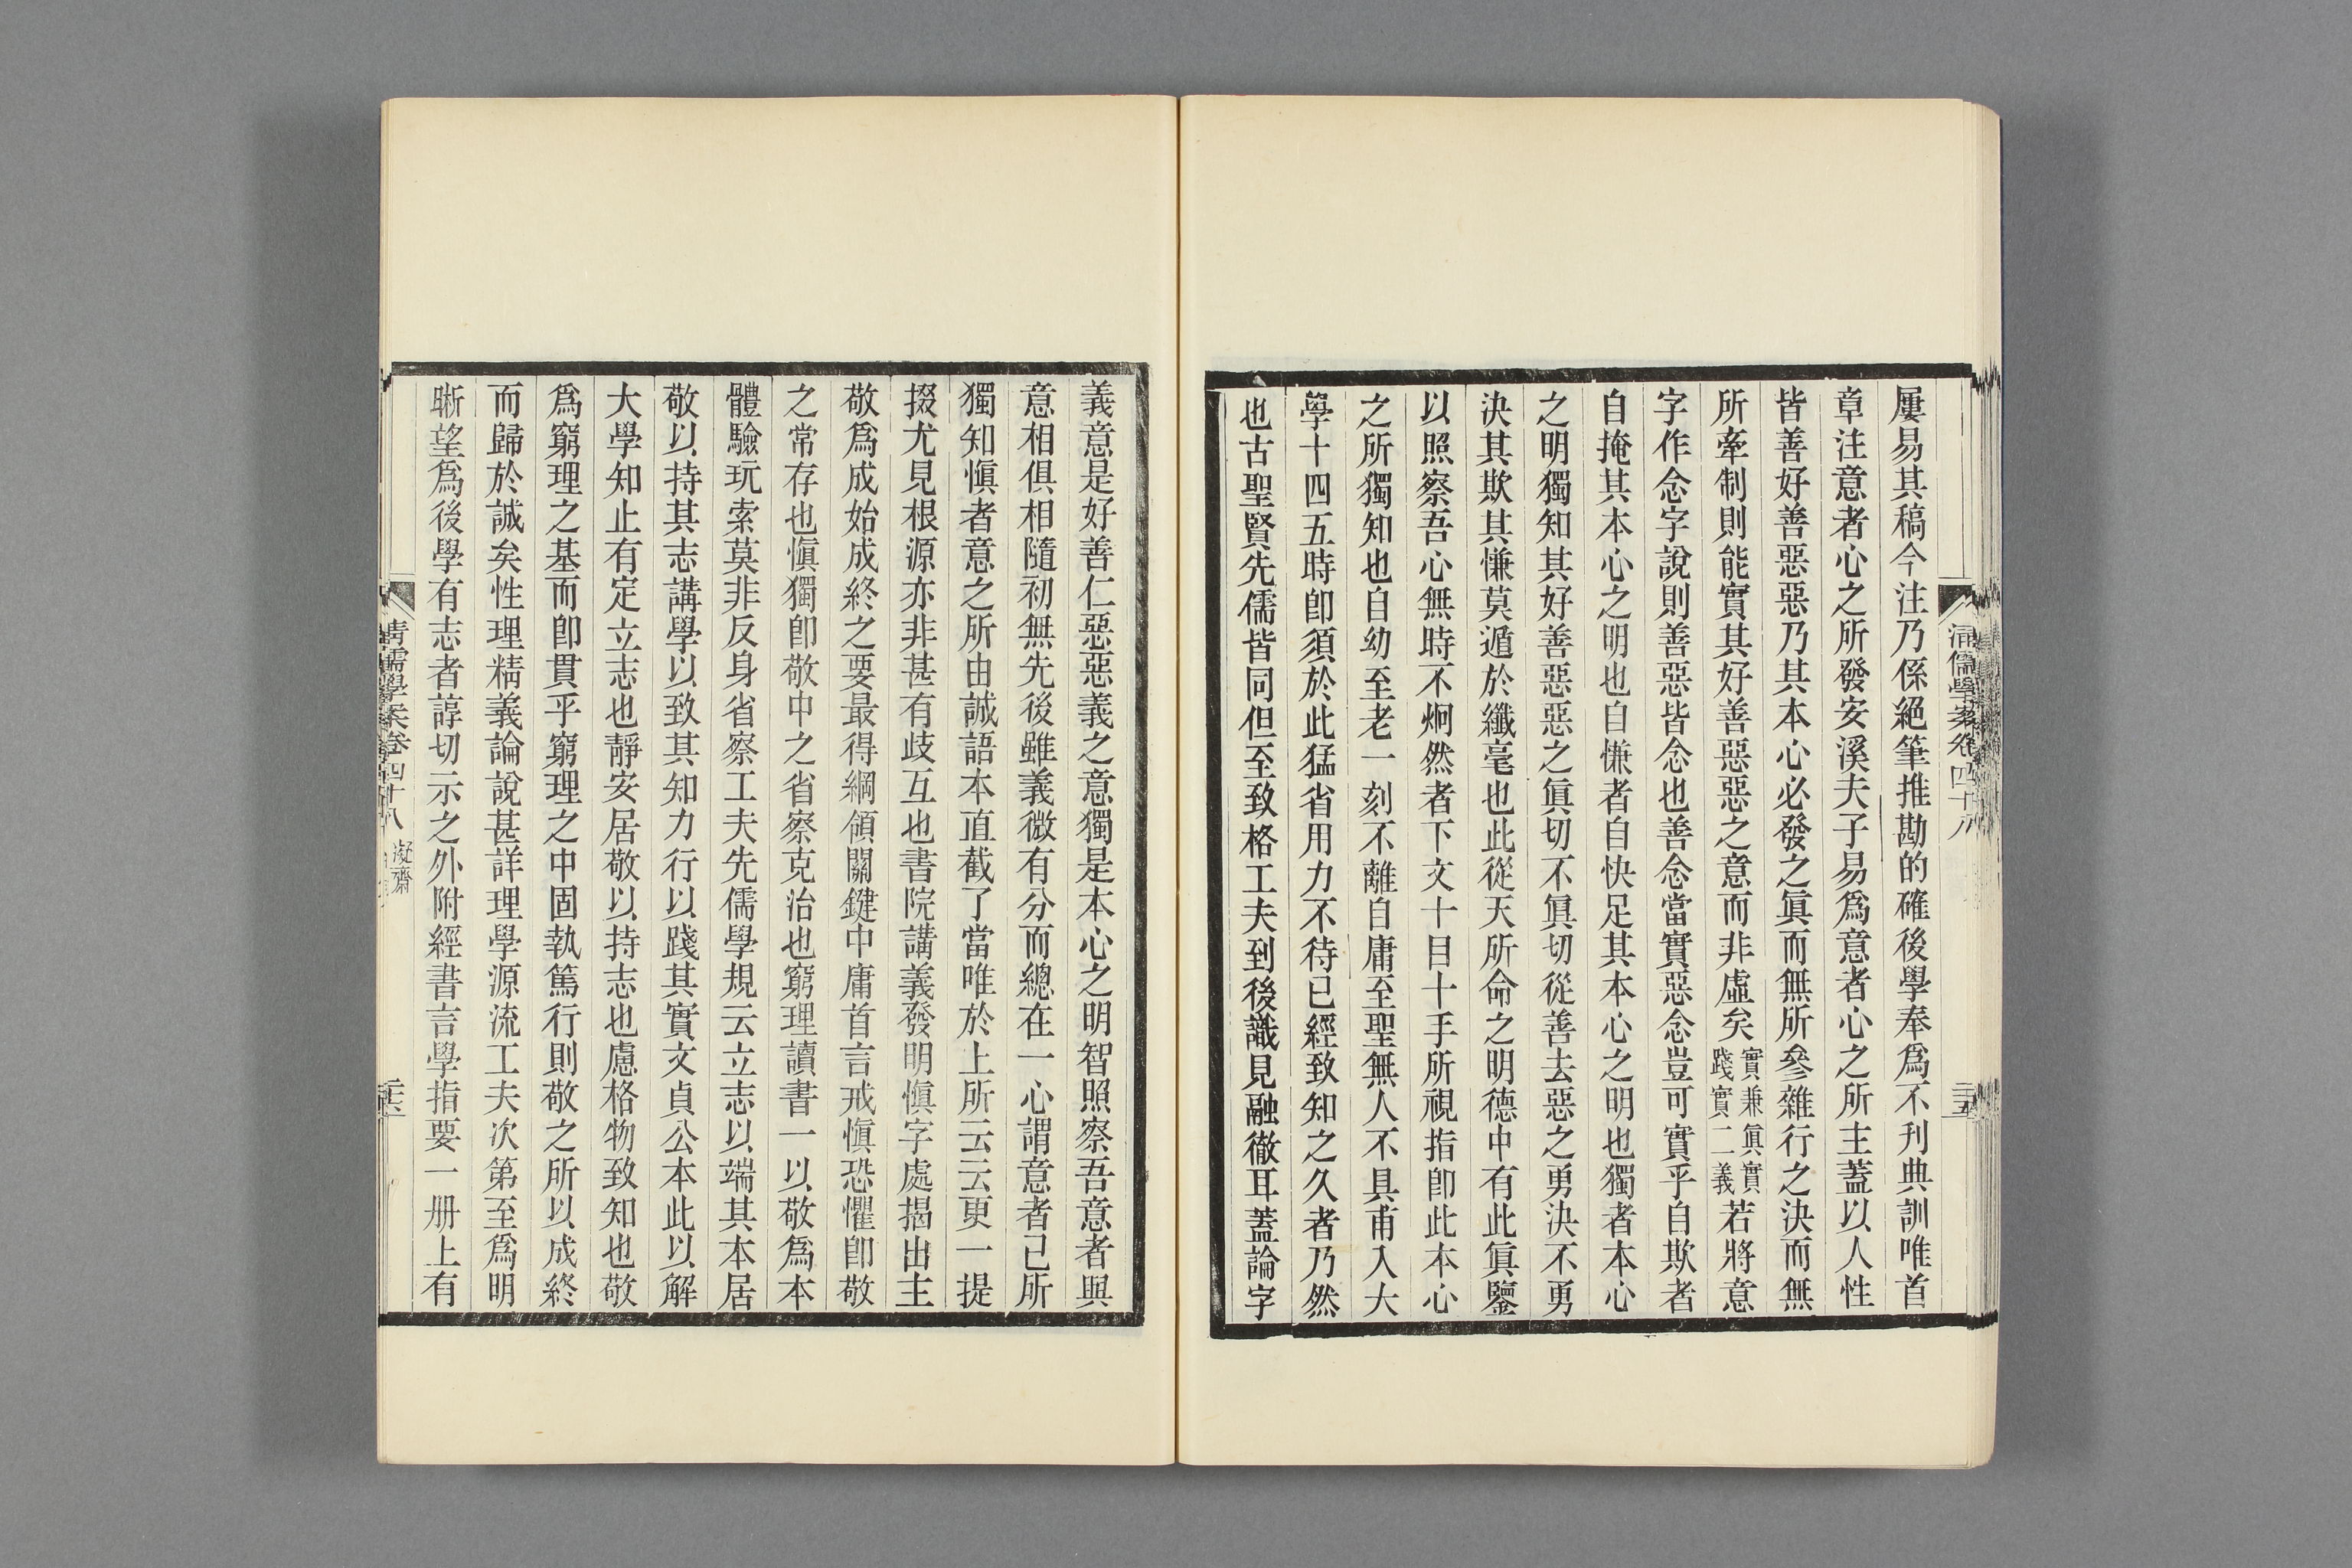 屢易其稿今注乃係絕筆推勘的確後學奉爲不刊典訓唯首
章注意者心之所發安溪夫子易爲意者心之所主蓋以人性
皆善好善惡惡乃其本心必發之眞而無所參雜行之決而無
所牽制則能實其好善惡惡之意而非虛矣實兼眞實踐實二義若將意
字作念字說則善惡皆念也善念當實惡念豈可實乎自欺者
自掩其本心之明也自慊者自快足其本心之明也獨者本心
之明獨知其好善惡惡之眞切不眞切從善去惡之勇決不勇
決其欺其慊莫遁於纖毫也此從天所命之明德中有此眞鑒
以照察吾心無時不炯然者下文十目十手所視指卽此本心
之所獨知也自幼至老一刻不離自庸至聖無人不具甫入大
學十四五時卽須於此猛省用力不待已經致知之久者乃然
也古聖賢先儒皆同但至致格工夫到後識見融徹耳蓋論字
清儒學案卷四十八
三五
義意是好善仁惡惡義之意獨是本心之明智照察吾意者與
意相俱相隨初無先後雖義微有分而總在一心謂意者己所
獨知愼者意之所由誠語本直截了當唯於上所云云更一提
掇尤見根源亦非甚有歧互也書院講義發明愼字處揭出主
敬爲成始成終之要最得綱領關鍵中庸首言戒愼恐懼卽敬
之常存也愼獨卽敬中之省察克治也窮理讀書一以敬爲本
體驗玩索莫非反身省察工夫先儒學規云立志以端其本居
敬以持其志講學以致其知力行以踐其實文貞公本此以解
大學知止有定立志也靜安居敬以持志也慮格物致知也敬
爲窮理之基而卽貫乎窮理之中固執篤行則敬之所以成終
而歸於誠矣性理精義論說甚詳理學源流工夫次第至爲明
晰望爲後學有志者諄切示之外附經書言學指要一册上有
清儒學案卷四十八 凝齋